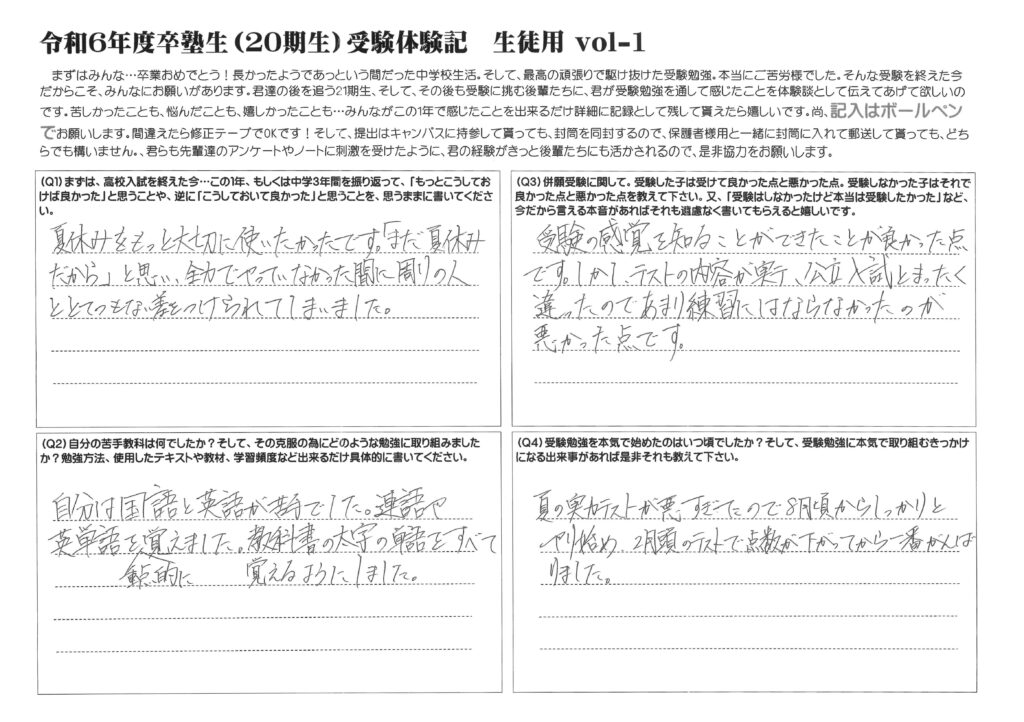 令和6年度卒塾生（20期生）受験体験記　生徒用 vol-1
まずはみんな…卒業おめでとう！長かったようであっという間だった中学校生活。そして、最高の頑張りで駆け抜けた受験勉強。本当にご苦労様でした。そんな受験を終えた今
だからこそ、みんなにお願いがあります。君達の後を追う21期生、そして、その後も受験に挑む後輩たちに、君が受験勉強を通して感じたことを体験談として伝えてあげて欲しいの
です。苦しかったことも、悩んだことも、嬉しかったことも…みんながこの1年で感じたことを出来るだけ詳細に記録として残して貰えたら嬉しいです。尚、記入はボールペン
でお願いします。間違えたら修正テープでOKです！そして、提出はキャンバスに持参して貰っても、封筒を同封するので、保護者様用と一緒に封筒に入れて郵送して貰っても、どち
らでも構いません。、君らも先輩達のアンケートやノートに刺激を受けたように、君の経験がきっと後輩たちにも活かされるので、是非協力をお願いします。
（Q1）まずは、高校入試を終えた今…この1年、もしくは中学3年間を振り返って、「もっとこうしてお
けば良かった」と思うことや、逆に「こうしておいて良かった」と思うことを、思うままに書いてくださ
い。
夏休みをもっと大切に使いたかったです。「まだ夏休み
だから」と思い、全力でやっていなかった間に周りの人
ととてつもない差をつけられてしまいました。
（Q2）自分の苦手教科は何でしたか？そして、その克服の為にどのような勉強に取り組みました
か？勉強方法、使用したテキストや教材、学習頻度など出来るだけ具体的に書いてください。
自分は国語と英語が苦手でした。連語や
英単語を覚えました。教科書の太字の単語をすべて
重点的に　覚えるようにしました。
（Q3）併願受験に関して。受験した子は受けて良かった点と悪かった点。受験しなかった子はそれで
良かった点と悪かった点を教えて下さい。又、「受験はしなかったけど本当は受験したかった」など、
今だから言える本音があればそれも遠慮なく書いてもらえると嬉しいです。
受験の感覚を知ることができたことが良かった点
です。しかし、テストの内容が楽で、公立入試とまったく
違ったのであまり練習にはならなかったのが
悪かった点です。
（Q4）受験勉強を本気で始めたのはいつ頃でしたか？そして、受験勉強に本気で取り組むきっかけ
になる出来事があれば是非それも教えて下さい。
夏の実力テストが悪すぎたので8月頃からしっかりと
やり始め、2月頭のテストで点数が下がってから一番がんば
りました。